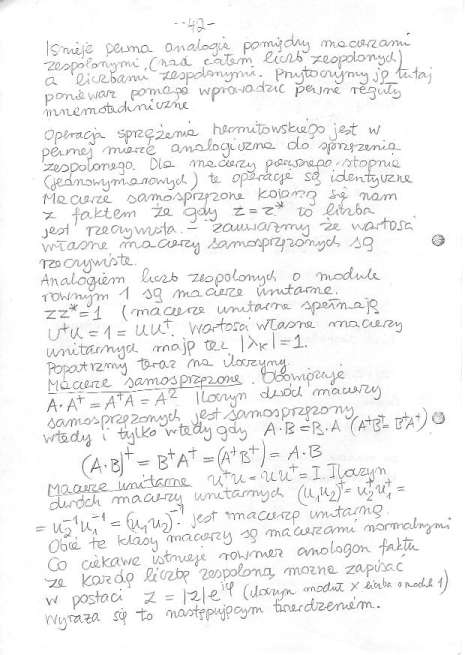 - 42 -
Istnieje pewna analogia pomiędzy macierzami
zespolonymi (nad ciałem liczb zespolonych)
a liczbami zespolonymi. Przytoczymy ją tutaj
ponieważ pomaga wprowadzić pewne reguły
mnemotechniczne
Operacja sprzężenia hermitowskiego jest w
pewnej mierze analogiczna do sprzężenia
zespolonego. Dla macierzy pierwszego stopnia
(jednowymiarowych) te operacje są identyczne
Macierze samosprzężone kojarzą się nam
z faktem że gdy z = z* to liczba
jest rzeczywista. – zauważmy że wartości
własne macierzy samosprzężonych są
rzeczywiste.
Analogiem liczb zespolonych o module
równym 1 są macierze unitarne.
zz* = 1 (macierze unitarne spełniają
U⁺U = 1 = UU⁺. Wartości własne macierzy
unitarnych mają też |λₖ| = 1.
Popatrzmy teraz na iloczyny.
Macierze samosprzężone. Obowiązuje
A·A⁺ = A⁺A = A² Iloczyn dwóch macierzy
samosprzężonych jest samosprzężony
wtedy i tylko wtedy gdy A·B = B·A (A⁺B⁺ = B⁺A⁺)
(A·B)⁺ = B⁺A⁺ = (A⁺B⁺) = A·B
Macierze unitarne U⁺U = UU⁺ = I. Iloczyn
dwóch macierzy unitarnych (U₁U₂)⁺ = U₂⁺U₁⁺ =
= U₂⁻¹U₁⁻¹ = (U₁U₂)⁻¹ jest macierzą unitarną.
Obie te klasy macierzy są macierzami normalnymi
Co ciekawe istnieje również analogon faktu
że każdą liczbę zespoloną można zapisać
w postaci z = |z|e^{iφ} (iloczyn moduł × liczba o module 1)
Wyraża się to następującym twierdzeniem.